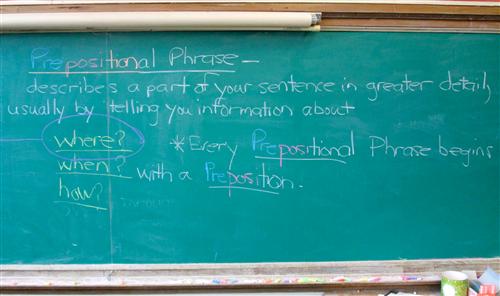 Prepositional Phrase –
describes a part of your sentence in greater detail,
usually by telling you information about
where? *Every Prepositional Phrase begins
when? with a Preposition.
how?